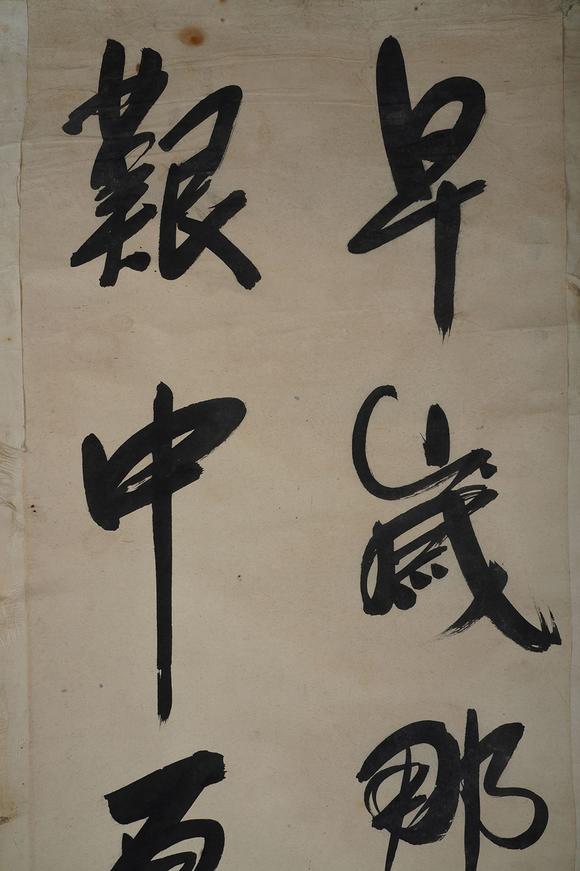 早歲那
艱中原